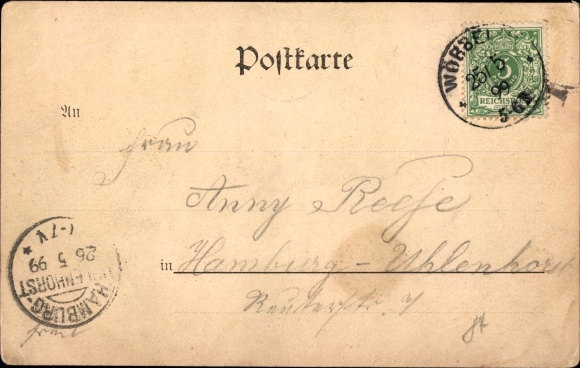 Postkarte
WÖBBEL
25/5
99
5-6N
5
REICHSPOST
An
Frau
Anny Reese
in Hamburg-Uhlenhorst
Reuterstr. 7
HAMBURG-
UHLENHORST
26 5 99
1-7V
frei